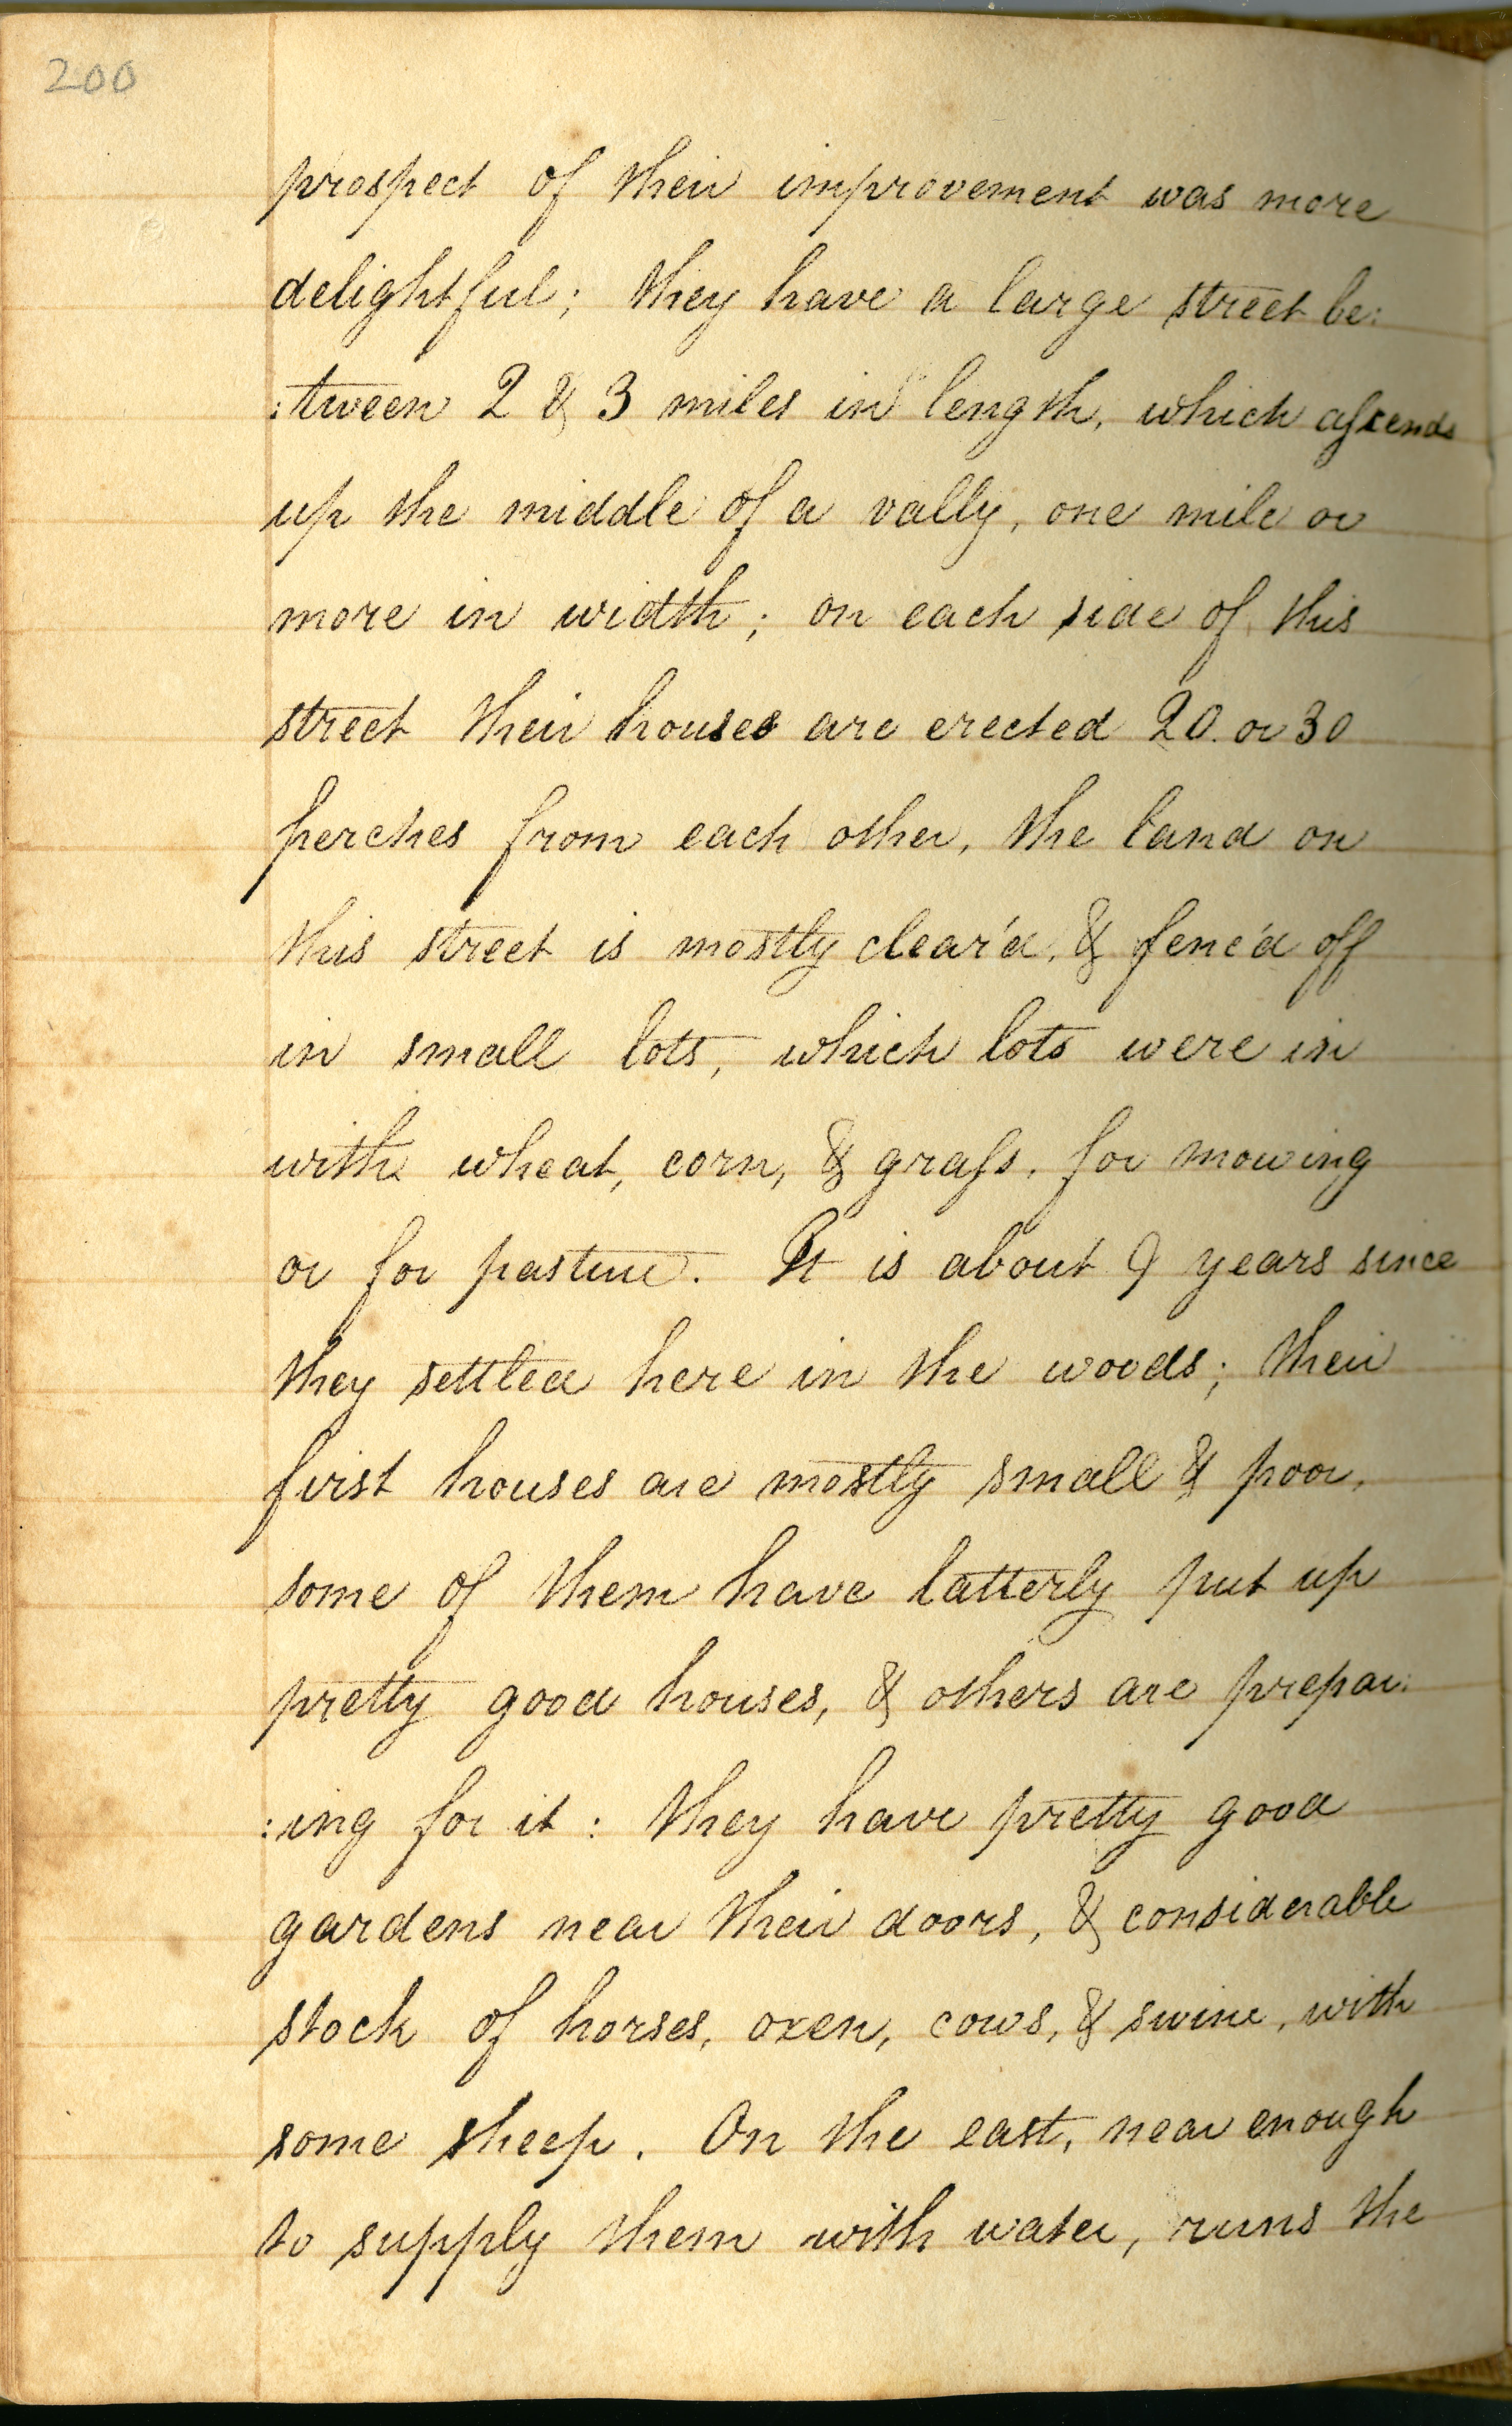 200
prospect of their improvement was more
delightful; they have a large street be:
:tween 2 & 3 miles in length, which aſcends
up the middle of a vally, one mile or
more in width; on each side of this
street their houses are erected 20. or 30
perches from each other, the land on
this street is mostly clear'd, & fenc'd off
in small lots, which lots were in
with wheat, corn, & graſs, for mowing
or for pasture. It is about 9 years since
they settled here in the woods; their
first houses are mostly small & poor,
some of them have latterly put up
pretty good houses, & others are prepar:
:ing for it: they have pretty good
gardens near their doors, & considerable
stock of horses, oxen, cows, & swine, with
some sheep. On the east, near enough
to supply them with water, runs the